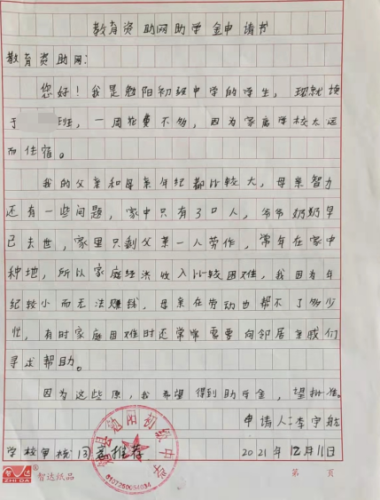 教育资助网助学金申请书
教育资助网:
您好!我是勉阳初级中学的学生,现就读
于 班,一周花费不够,因为家庭学校太远
而住宿。
我的父亲和母亲年纪都比较大,母亲智力
还有一些问题,家中只有3口人,爷爷奶奶早
已去世,家里只剩父亲一人劳作,常年在家中
种地,所以家庭经济收入比较困难,我因为年
纪较小而无法赚钱,母亲在劳动也帮不了多少
忙,有时家庭困难时还常常需要向邻居亲戚们
寻求帮助。
因为这些原,我希望得到助学金,望批准。
申请人:李宇航
学校审核:同意推荐
2021年12月11日
智达纸品
第 页